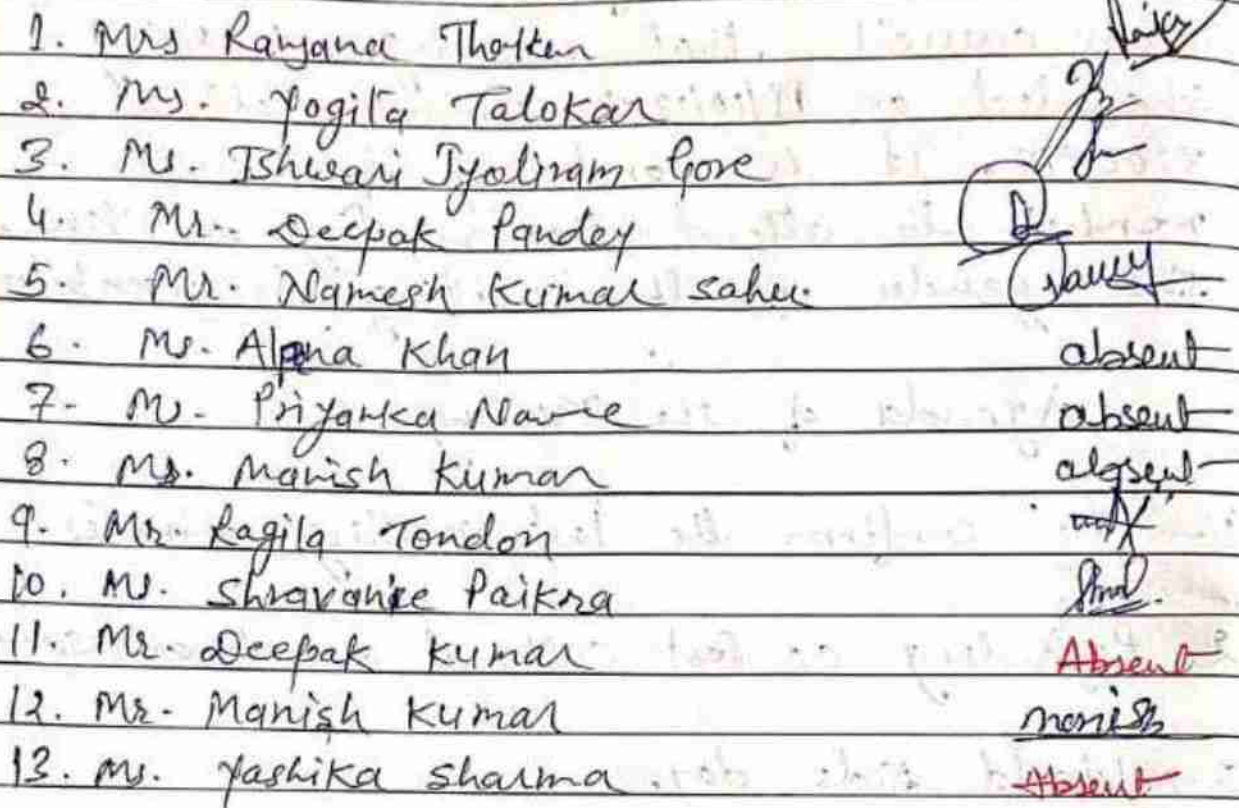 1. Mrs Ranjana Thotken
2. Ms. Yogita Talokar
3. Ms. Ishwari Jyotiram Gore
4. Mr. Deepak Pandey
5. Mr. Namesh Kumar sahu.
6. Ms. Alpna Khan absent
7- Ms- Priyanka absent
8. Ms. Manish Kumar absent
9. Mr. Ragila Tondon
10. Ms. Shravanee Paikra
11. Mr. Deepak Kumar Absent
12. Mr- Manish Kumar manish
13. Ms. Yashika sharma Absent